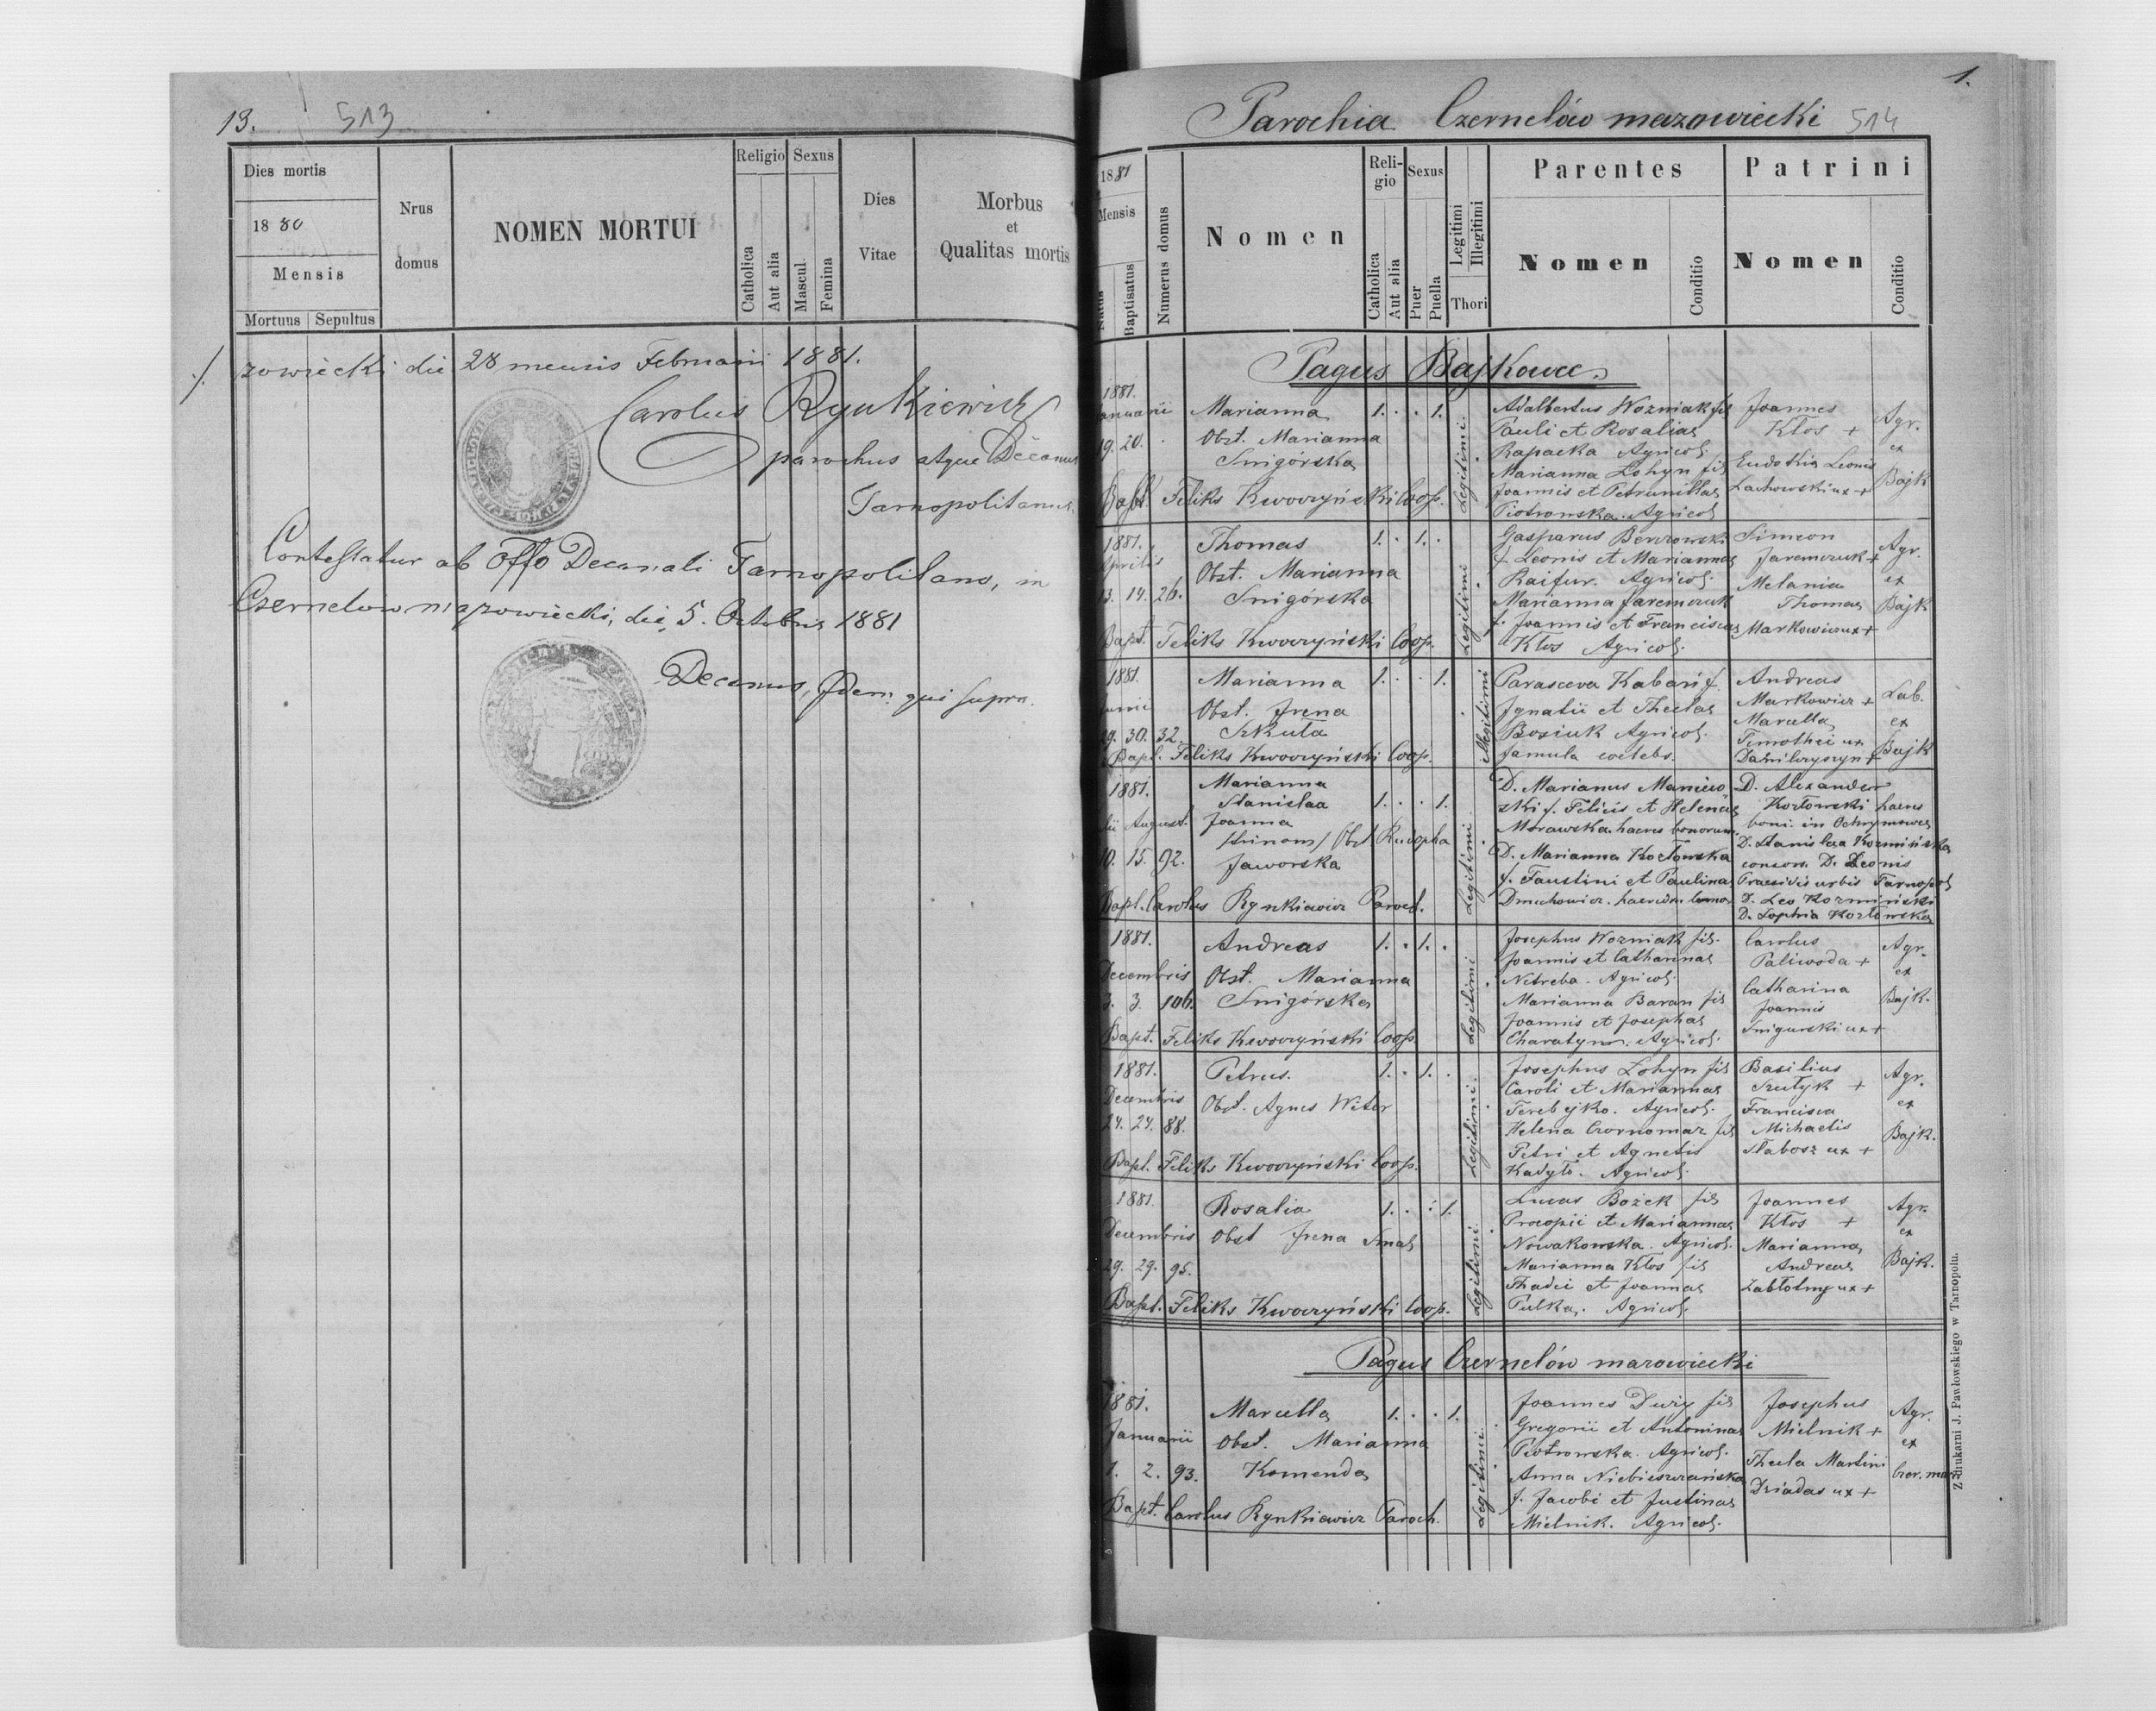 13. 513
Dies mortis
1880
Mensis
Mortuus Sepultus
Nrus
domus
NOMEN MORTUI
Religio
Catholica
Aut alia
Sexus
Mascul.
Femina
Dies
Vitae
Morbus
et
Qualitas mortis
./. zowiecki die 28 mensis Februarii 1881.
Carolus Rynkiewicz
parochus atque Decanus
Tarnopolitanus
Contestatur ab Offo Decanali Tarnopolitano, in
Czernelow mazowiecki, die 5. Octobris 1881
Decanus, Idem qui supra.
1.
Parochia Czernelów mazowiecki 514
1881
Mensis
Natus
Baptisatus
Numerus domus
Nomen
Religio
Catholica
Aut alia
Sexus
Puer
Puella
Legitimi
Illegitimi
Thori
Parentes
Nomen
Conditio
Patrini
Nomen
Conditio
Pagus Bajkowce.
1881.
Januarii
19. 20.
Marianna
Obst. Marianna
Snigórska
1. . . 1.
Legitimi.
Adalbertus Wozniak fil
Pauli et Rosalias
Rapacka Agricol.
Marianna Lohyn fil
Joannis et Petrunillas
Piotrowska. Agricol
Joannes
Klos +
Eudothia Leonis
Lachowski ux +
Agr.
ex
Bajk
Bapt. Feliks Kwoczyński Coop.
1881.
Aprilis
13. 14. 26.
Thomas
Obst. Marianna
Snigórska
1. . 1. .
Legitimi
Gasparus Berezowski
f. Leonis et Mariannas
Raifur. Agricol.
Marianna Jaremczuk
f. Joannis et Franciscas
Klos Agricol.
Simeon
Jaremczuk +
Melania
Thomas
Markowicz ux +
Agr.
ex
Bajk
Bapt. Feliks Kwoczyński Coop.
1881.
Junii
29. 30. 32.
Marianna
Obst. Irena
Szkuta
1. . . 1.
Illegitimi
Parasceva Kabari f.
Ignatii et Theclas
Bosiuk Agricol.
famula coelebs.
Andreas
Markowicz +
Marcella
Timothei ux
Danilczyszyn +
Lab.
ex
Bajk
Bapt. Feliks Kwoczyński Coop.
1881.
August.
10. 15. 92.
Marianna
Stanislaa
Joanna
/trinom/ Obst Rudopha
Jaworska
1. . . 1.
Legitimi.
D. Marianus Maniews
zki f. Felicis et Helenas
Morawska. haeres bonorum.
D. Marianna Kozlowska
f. Faustini et Paulinas
D. Alexander
Kozlowski haeres
bonor. in Ochrymowce
D. Stanislaa Kozmińska
consors D. Leonis
Praesidis urbis Tarnopol
D. Leo Kozmiński
D. Sophia Kozlowska
Bapt. Carolus Rynkiewicz Paroch.
1881.
Decembris
3. 3. 106.
Andreas
Obst. Marianna
Snigórska
1. . 1. .
Legitimi
Josephus Wozniak fil.
Joannis et Catharinas
Netreba. Agricol.
Marianna Baran fil
Joannis et Josephas
Charatyn. Agricol.
Carolus
Paliwoda +
Catharina
Joannis
Snigurski ux +
Agr.
ex
Bajk.
Bapt. Feliks Kwoczyński Coop.
1881.
Decembris
24. 24. 88.
Petrus.
Obst. Agnes Witer
1. . 1. .
Legitimi.
Josephus Lohyn fil
Caroli et Mariannas
Terebejko. Agricol.
Helena Czornomaz fil
Petri et Agnetis
Kadylo. Agricol.
Basilius
Szulyk +
Francisca
Michaelis
Slabosz ux +
Agr.
ex
Bajk.
Bapt. Feliks Kwoczyński Coop.
1881.
Decembris
29. 29. 95.
Rosalia
Obst Irena Smal
1. . . 1.
Legitimi.
Lucas Bożek fil
Procopii et Mariannas
Nowakowska. Agricol.
Marianna Klos fil
Thadei et Joannas
Pulka. Agricol.
Joannes
Klos +
Marianna
Andreas
Zablotny ux +
Agr.
ex
Bajk.
Bapt. Feliks Kwoczyński Coop.
Pagus Czernelów mazowiecki
1881.
Januarii
1. 2. 93.
Marcella
Obst. Marianna
Komenda
1. . . 1.
Legitimi.
Joannes Duży fil
Gregorii et Antoninas
Piotrowska. Agricol.
Anna Niebieszczańska
f. Jacobi et Justinas
Mielnik. Agricol.
Josephus
Mielnik +
Thecla Martini
Dziadas ux +
Agr.
ex
Czer. maz.
Bapt. Carolus Rynkiewicz Paroch.
Z drukarni J. Pawłowskiego w Tarnopolu.